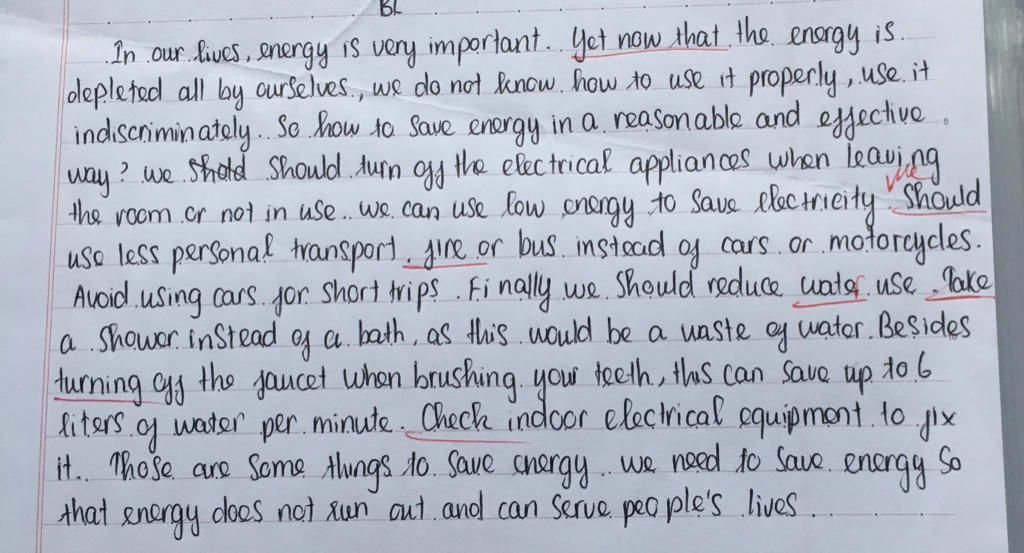 BL
In our lives, energy is very important. Yet now that the energy is
depleted all by ourselves, we do not know how to use it properly, use it
indiscriminately. So how to save energy in a reasonable and effective
way? we should turn off the electrical appliances when leaving
the room or not in use. we can use low energy to save electricity. We should
use less personal transport. fire or bus instead of cars or motorcycles.
Avoid using cars for short trips. Finally we should reduce water use. Take
a shower instead of a bath, as this would be a waste of water. Besides
turning off the faucet when brushing your teeth, this can save up to 6
liters of water per minute. Check indoor electrical equipment to fix
it. Those are some things to save energy. we need to save energy so
that energy does not run out and can serve people's lives.